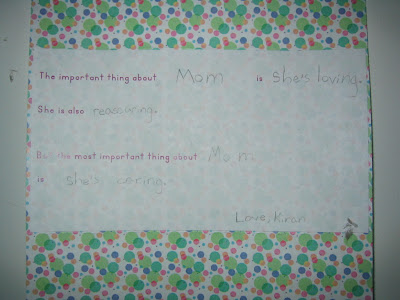 The important thing about Mom is she's loving.
She is also reassuring.
But the most important thing about Mom
is she's cering.
Love, Kiran